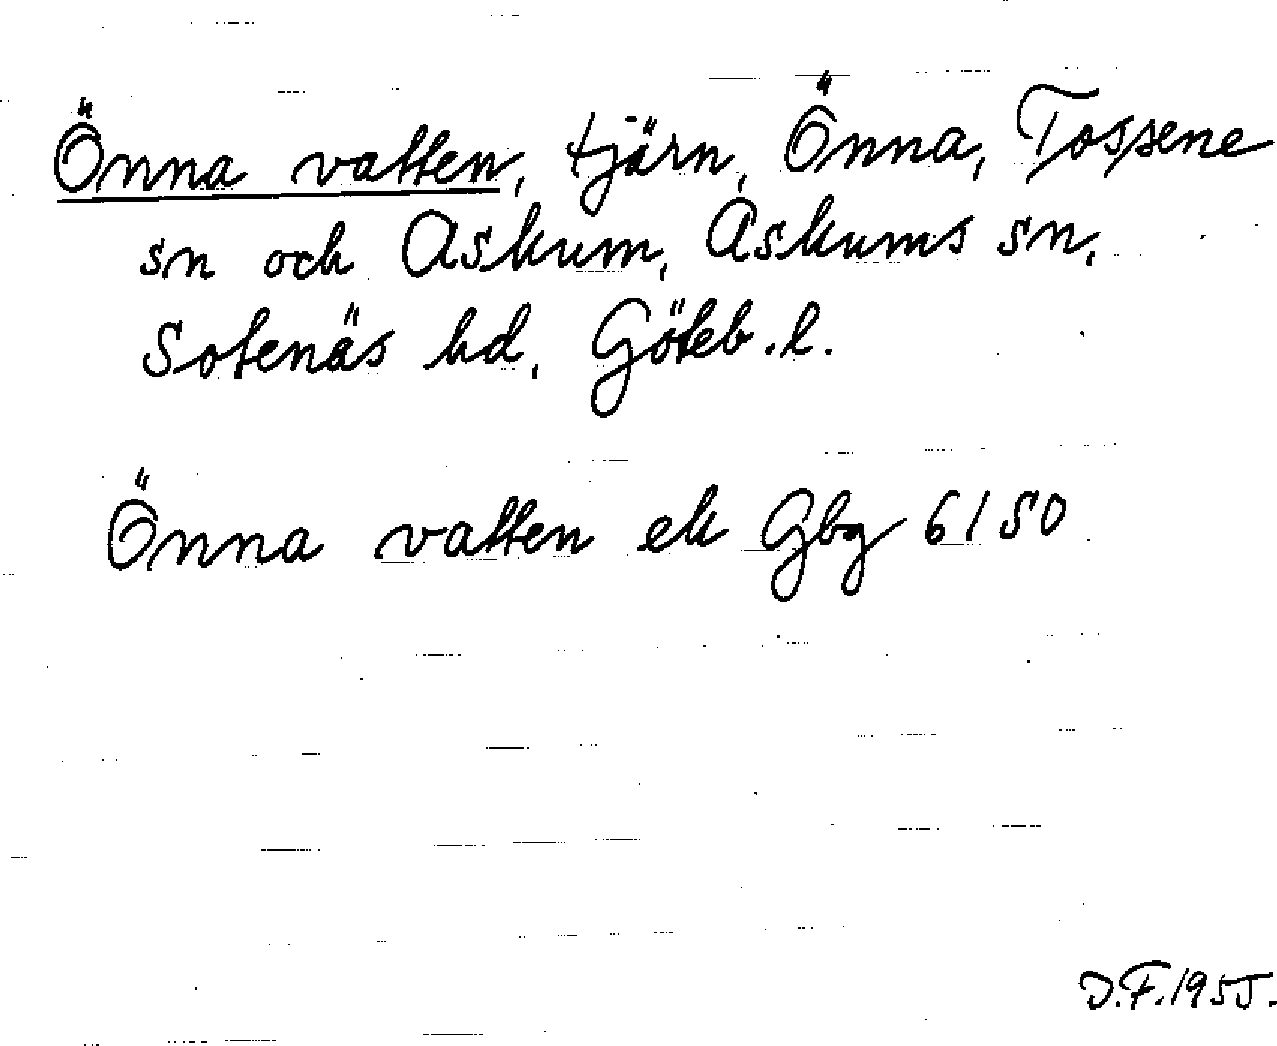 Önna vatten, tjärn, Önna, Tossene
sn och Askum, Askums sn,
Sotenäs hd, Göteb. l.
Önna vatten ek Gbg 6150
D.F. 1955.